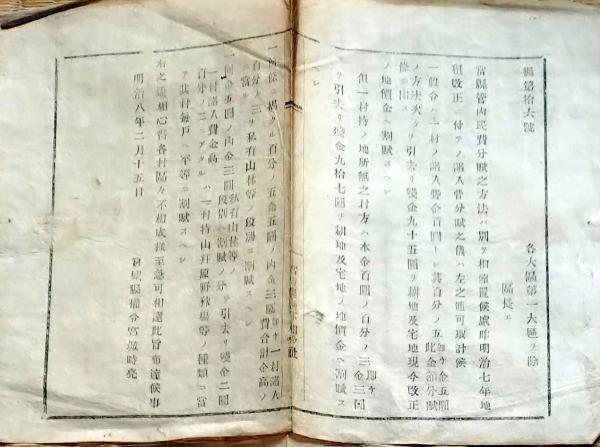 縣第拾六號
各大區第一大區ヲ除
區長エ
當縣管内民費分賦之方法ハ別ヲ相達置候處昨明治七年地
租改正ニ付テノ諸入費分賦之儀ハ左之通可取計候
一假令ハ一村ノ諸入費金百圓トシ其百分ノ五 即チ金五圓 此金額分賦
ノ方法次ヲ引去リ殘金九十五圓ヲ耕地及宅地現今改正
條ニ出ス
ノ地價金ヘ割賦スヘシ
但一村持ノ地所無之村方ハ本金百圓ノ百分ノ三 即チ金三圓
ヲ引去リ殘金九拾七圓ヲ耕地及宅地ノ地價金ヘ割賦ス
ヘシ
一前條ニ掲ル百分ノ五金五圓ノ内金三圓 即チ一村諸入費合計金高ノ
百分ノ三ヲ私有山林等ノ段別ニ割賦スヘシ
ニ當ル
一同金五圓ノ内金三圓 私有山林等ノ段別ヘ割賦ノ分ヲ引去リ殘金二圓
一村諸入費金高
百分ノ二ニアタルハ一村持山幷原野秣場等ノ種類ニ當
ヲ其村毎戸ヘ平等ニ割賦スヘシ
右之通相心得各村區々不相成樣至急可相達此旨布達候事
明治八年二月十五日
宮城縣權令宮城時亮